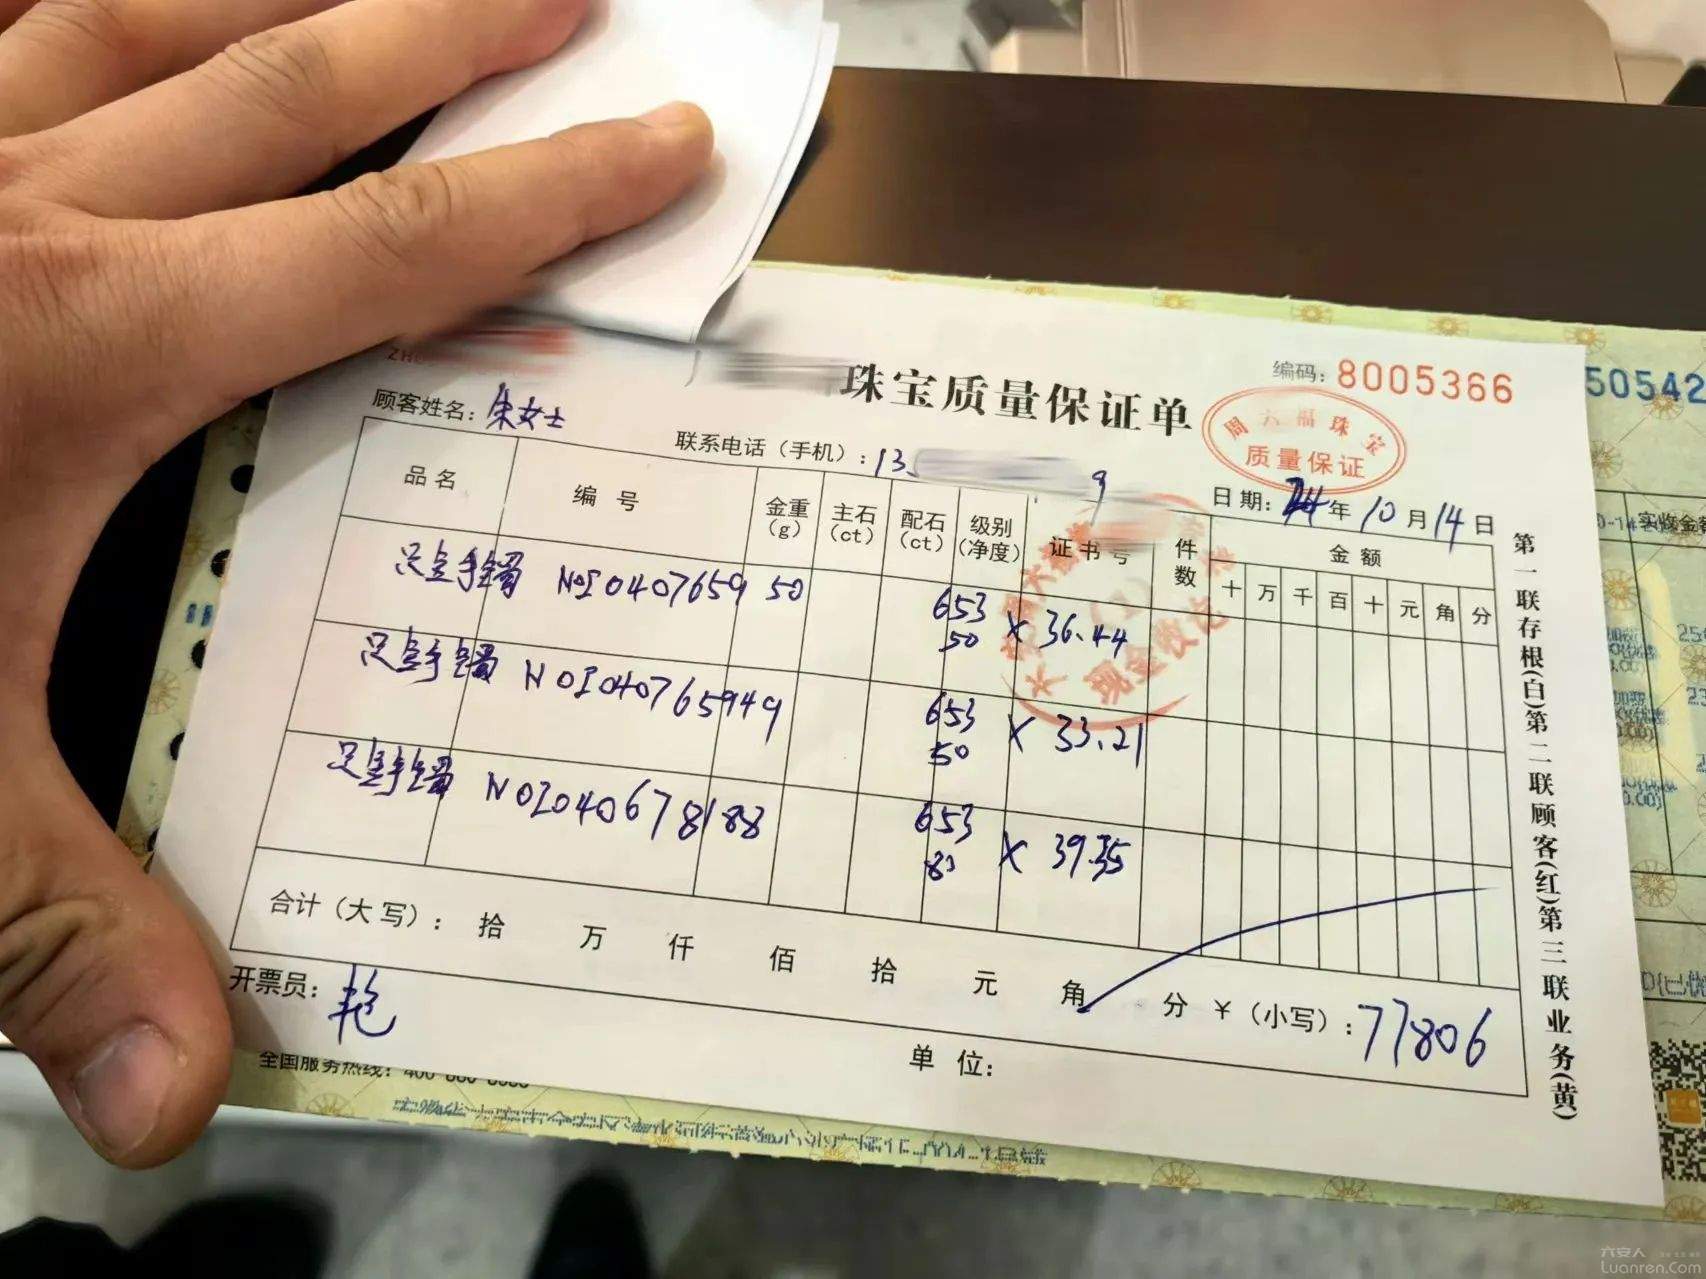 珠宝质量保证单
编码：8005366
50542
周六福珠宝
质量保证
顾客姓名：朱女士
联系电话（手机）：13 9
日期：24年10月14日
品名 编号 金重(g) 主石(ct) 配石(ct) 级别(净度) 证书号 件数 金额
十 万 千 百 十 元 角 分
足金手镯 NOI0407659 50 653 50 × 36.44
足金手镯 NOI040765949 653 50 × 33.21
足金手镯 NOI040678188 653 × 39.35
现金收讫
合计（大写）： 拾 万 仟 佰 拾 元 角 分 ￥（小写）：77806
开票员：艳
单位：
全国服务热线：400-
第一联存根(白)第二联顾客(红)第三联业务(黄)
实收金
六安人
Luanren.Com